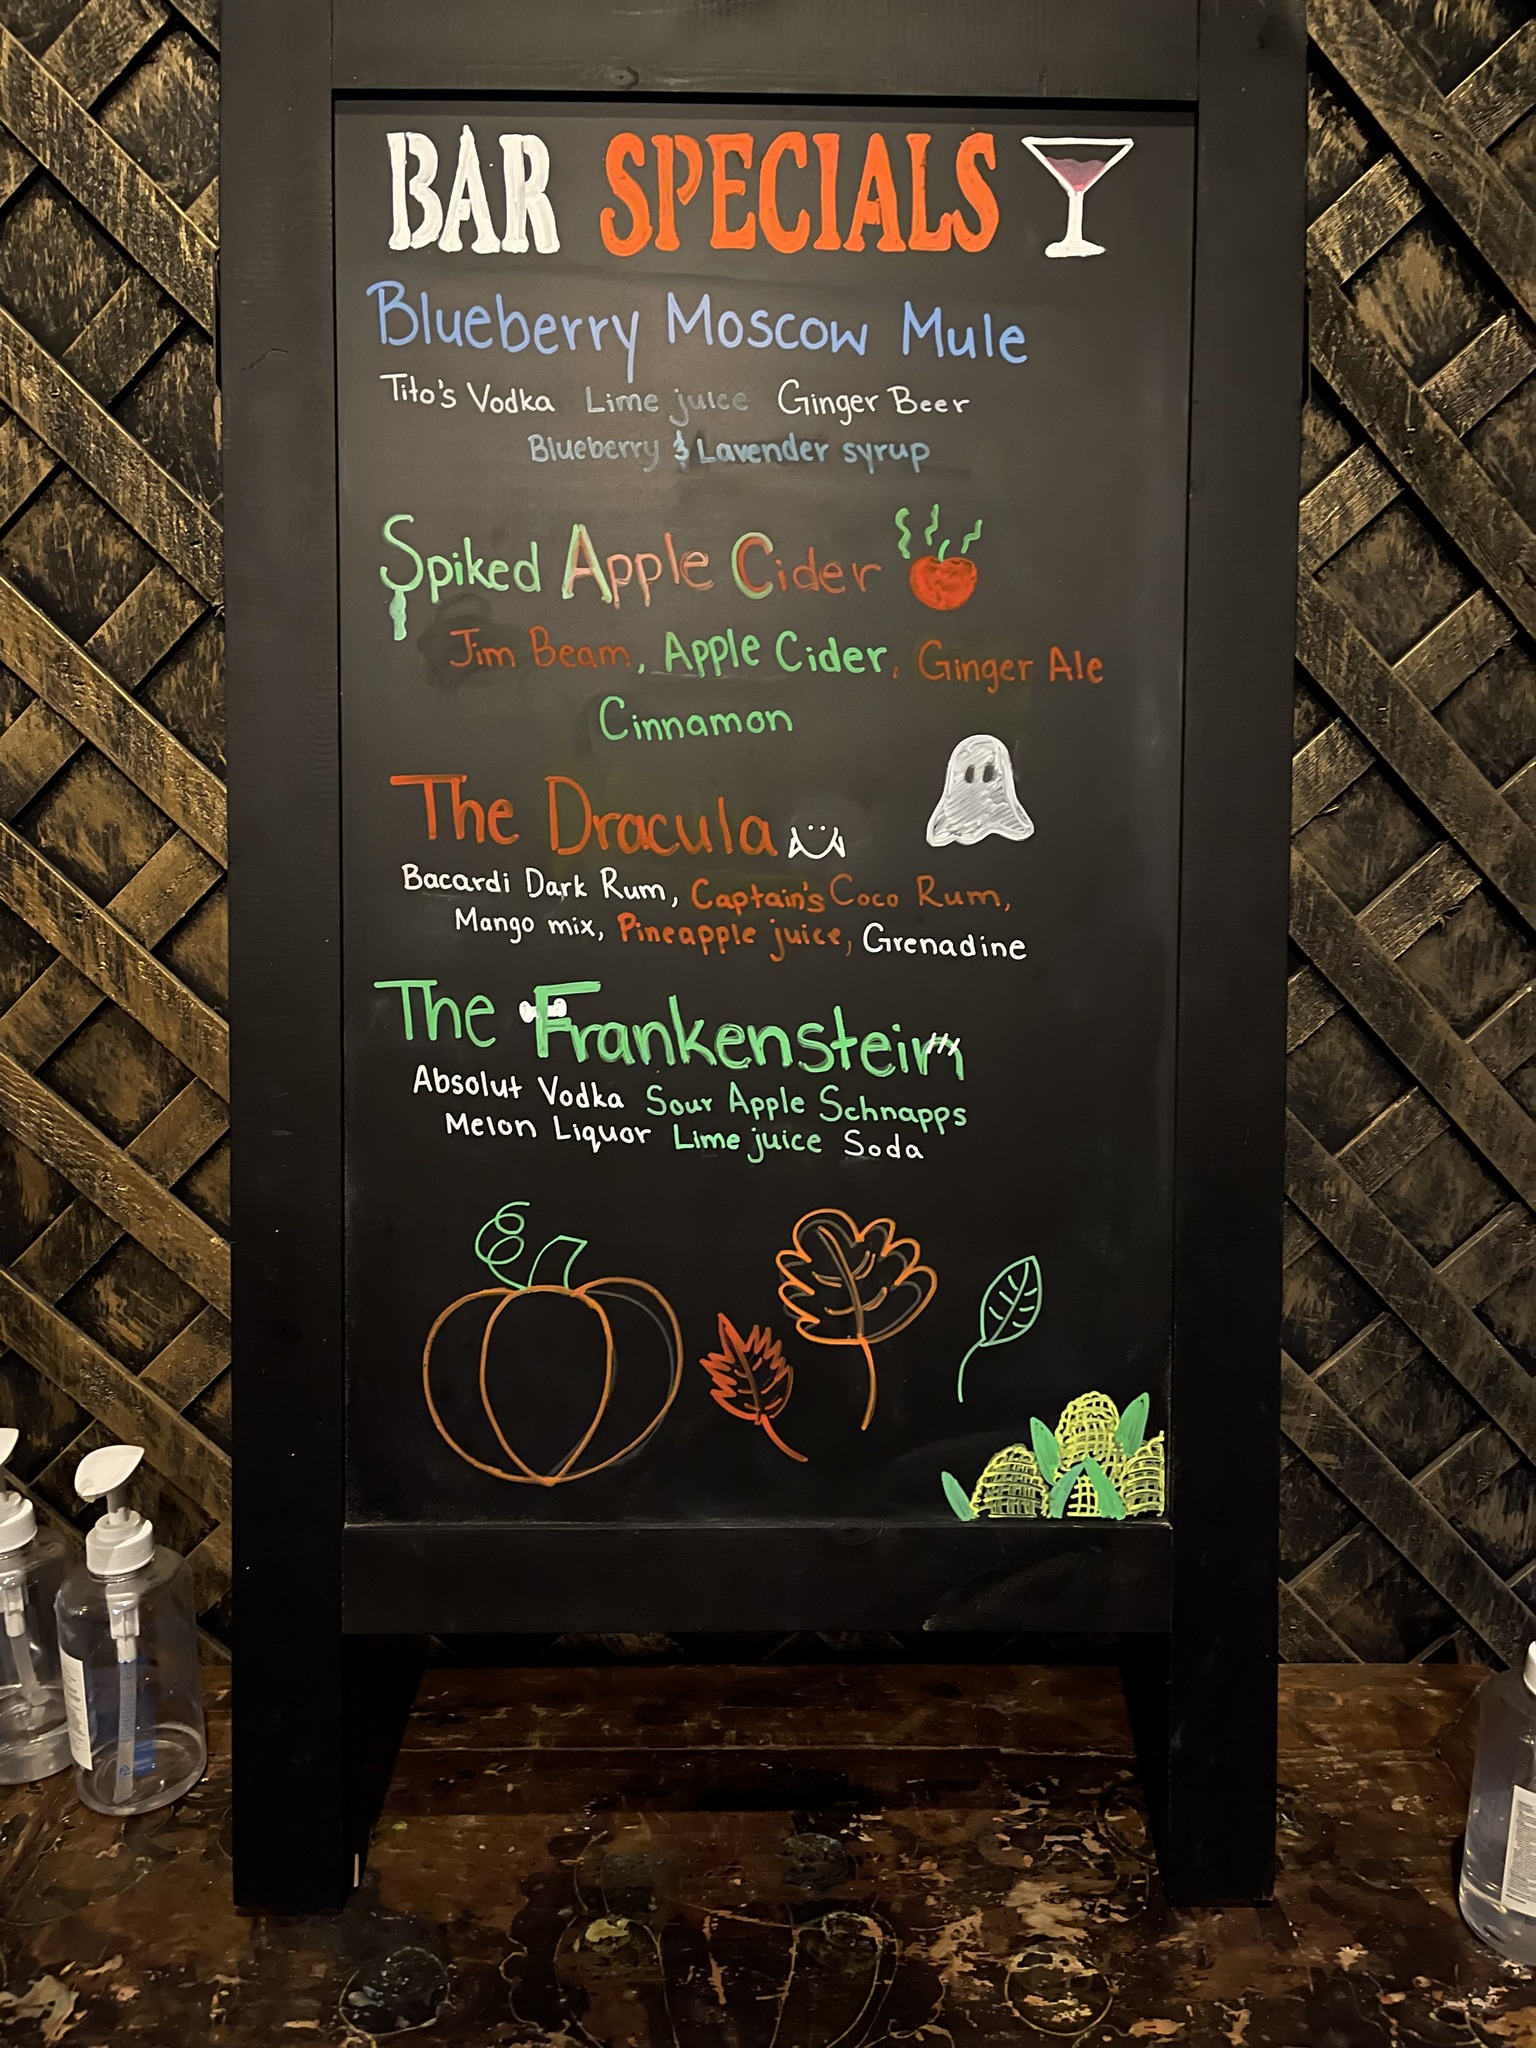 BAR SPECIALS
Blueberry Moscow Mule
Tito's Vodka Lime juice Ginger Beer
Blueberry & Lavender syrup
Spiked Apple Cider
Jim Beam, Apple Cider, Ginger Ale
Cinnamon
The Dracula
Bacardi Dark Rum, Captain's Coco Rum,
Mango mix, Pineapple juice, Grenadine
The Frankenstein
Absolut Vodka Sour Apple Schnapps
Melon Liquor Lime juice Soda